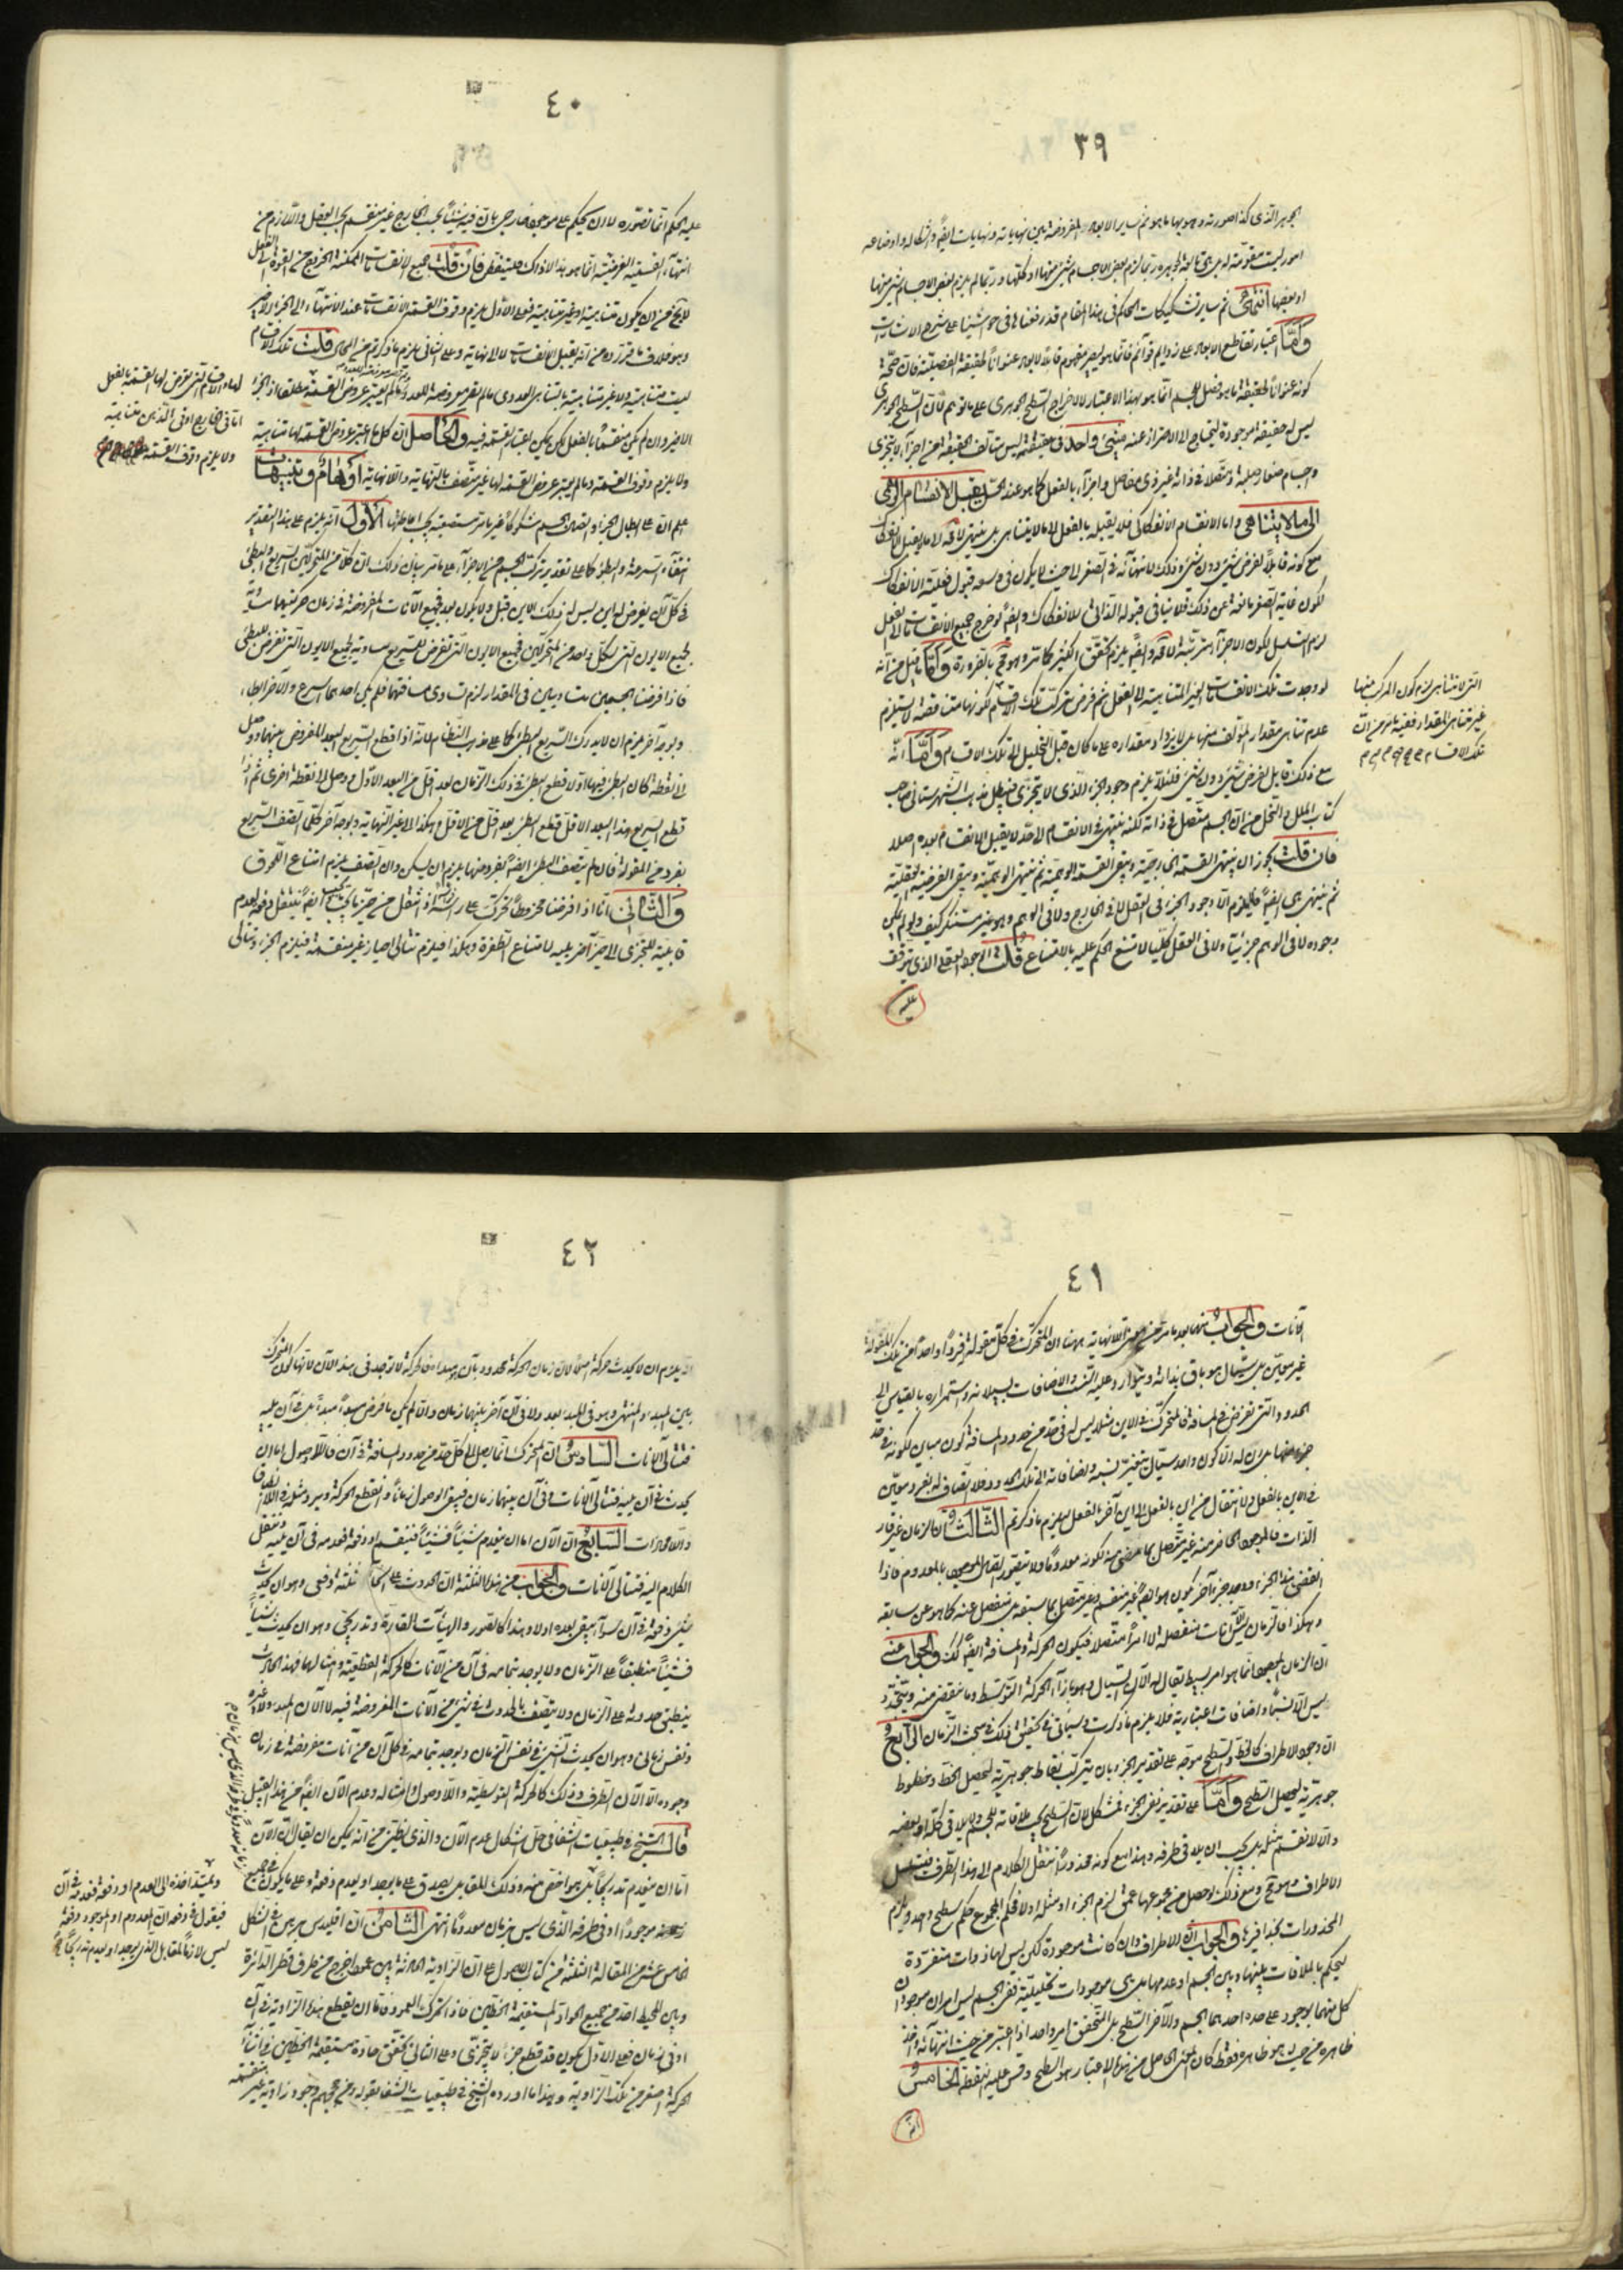 ٣٩
الجوهر الذى كذا صورته وهويتها ما هو ثم ساير الابعاد المفروضة بين نهاياته ونهايات ايضا واشكاله واوضاعه
امور ليست مقومة له بل هى تابعة لجوهره وربما لزم بعض الاجسام شئ منها او كلها وربما لم يلزم بعض الاجسام شئ منها
او بعضها انتهى ثم ساير تشكيكات المحاكم فى هذا المقام قد رفعناها فى حواشينا على شرح الاشارات
واما اعتبار تقاطع الابعاد على زوايا قوائم فانما هو ليصير مفهوم قابل الابعاد عنوانا لحقيقة الفصلية فان صحة
كونه عنوانا لحقيقة ما هو فصل للجسم انما هو بهذا الاعتبار لا لاخراج السطح الجوهرى على ما توهم لان السطح الجوهرى
ليس له حقيقة موجودة ليحتاج الى الاحتراز عنه شئ واحد فى حقيقته ليس متألف الحقيقة من اجزاء لا يتجزى
واجسام صغار صلبة ومتصل فى ذاته غير ذى مفاصل واجزاء بالفعل كما هو عند الحس يقبل الانقسام الوهمى
الى ما لا يتناهى واما الانقسام الانفكاكى فلا يقبله بالفعل الى ما لا يتناهى بل ينتهى لا محالة الى ما لا يقبل الانفكاك
مع كونه قابلا لفرض شئ دون شئ وذلك لانتهائه فى الصغر الى حيث لا يكون فى وسعه قبول فعلية الانفكاك
لكون غاية الصغر مانعة عن ذلك فلا ينافى قبوله الذاتى للانفكاك وايضا لو خرج جميع الانقسامات الى الفعل
لزم التسلسل لكون الاجزاء مترتبة لا محالة وايضا يلزم تحقق الكثير كما مر وهو محال بالضرورة واما ما قيل من انه
لو وجدت تلك الانقسامات الغير المتناهية الى الفعل ثم فرض تركب تلك الاقسام لكونها متناقصة لا يستلزم
عدم تناهى مقدار المؤلف منها بل لا يزداد مقداره على ما كان قبل التحليل الى تلك الاقسام واما انه
مع ذلك قابل لفرض شئ دون شئ فلئلا يلزم وجود الجزء الذى لا يتجزى فبطل مذهب الشهرستانى صاحب
كتاب الملل والنحل من ان الجسم متصل فى ذاته لكنه ينتهى فى الانقسام الى حد لا يقبل الانقسام بعده اصلا
فان قلت يجوز ان ينتهى القسمة الخارجية ويبقى القسمة الوهمية ثم ينتهى الوهمية ويبقى الفرضية العقلية
ثم ينتهى هى ايضا فلا يلزم الا وجود الجزء فى العقل لا فى الخارج ولا فى الوهم وهو غير مستنكر كيف ولو لم يكن
وجوده لا فى الوهم جزئيا ولا فى العقل كليا لامتنع الحكم عليه بالامتناع قلت الوجود العقلى الذى يتوقف
عليه
التى لا تتناهى لزم كون المركب منها
غير متناهى المقدار ففيه ما مر من ان
تلك الاقسام
٤٠
عليه الحكم انما تصوره لا ان يحكم على موجود خارجى بان فيه شيئا بحسب الخارج غير منقسم بحسب العقل واللازم من
انتهاء القسمة الفرضية انما هو هذا لا ذاك فليتفطن فان قلت جميع الانقسامات الممكنة الخروج من القوة الى الفعل
لا يخ من ان يكون متناهية او غير متناهية فعلى الاول يلزم وقوف القسمة الانقسامات عند الانتهاء الى الجزء الاخير
وهو خلاف ما قررتموه من انه يقبل الانقسامات لا الى نهاية وعلى الثانى يلزم ما ذكرتم من المحال قلت تلك الاقسام
ليست متناهية ولا غير متناهية بالتناهى العددى ما لم يعرض معروضة للعدد وما لم يعتبر عروض القسمة مطلقا اذ الجزء
الاخير وان لم يكن منقسما بالفعل لكن يمكن اعتبار القسمة فيه والحاصل ان كل ما اعتبر عروض القسمة لها متناهية
ولا يلزم وقوف القسمة وما لم يعتبر عروض القسمة لها غير متصف بالنهاية واللانهاية اوهام وتنبيهات
اعلم ان على ابطال الجزء واتصال الجسم شكوكا غير ما مر مستصعبة يجب اماطتها الاول انه يلزم على هذا التقدير
انتفاء السرعة والبطؤ كما على تقدير تركب الجسم من الاجزاء على ما مر بيان ذلك ان كلا من المتحركين السريع والبطئ
فى كل آن يفرض له اين ليس له ذلك الاين قبل ولا يكون بعد فجميع الآنات المفروضة فى زمان حركتيهما مساوية
لجميع الايون التى لكل واحد من المتحركين فجميع الايون التى تفرض للسريع مساوية لجميع الايون التى تفرض للبطئ
فاذا فرضنا الجسمين متساويين فى المقدار لزم تساوى مسافتيهما فلم يكن احدهما اسرع والآخر ابطأ
وبوجه آخر يلزم ان لا يدرك السريع البطئ كما على مذهب النظام لانه اذا قطع السريع البعد المفروض بينهما ووصل
الى نقطة كان البطئ فيها اولا قطع البطئ فى ذلك الزمان بعدا اقل من البعد الاول ووصل الى نقطة اخرى ثم اذا
قطع السريع هذا البعد الاقل قطع البطئ بعدا اقل من الاقل وهكذا الى غير النهاية وبوجه آخر كلما اتصف السريع
بفرد من المقولة فان لم يتصف البطئ ايضا بفرد منها يلزم ان يسكن وان اتصف يلزم امتناع اللحوق
والثانى انا اذا فرضنا مخروطا تحرك على رأسه اذا انتقل من حيز بالحركة ايضا ينتقل دفعة لعدم
قابليته للتجزى الى حيز آخر يليه لامتناع الطفرة وهكذا فيلزم تتالى احياز غير منقسمة فيلزم الجزء وتتالى
لهذه الاقسام التى تعرض لها القسمة بالفعل
اما فى الخارج او فى الذهن متناهية
ولا يلزم وقوف القسمة
٤١
الآنات والجواب عنهما بعد ما مر من معنى اللانهاية ههنا ان المتحرك فى كل مقولة فردا واحدا من تلك المقولة
غير معين بل سيال هو باق بذاته ويتوارد عليه النسب والاضافات لسيلانه واستمراره بالقياس الى
الحدود التى تفرض فى المسافة فالمتحرك فى الاين مثلا ليس له فى حد من حدود المسافة كون مباين لكونه فى حد
آخر منها بل ان له الا كون واحد سيال يتغير نسبه واضافاته الى تلك الحدود فلا اتصاف له بفرد معين
من الاين بالفعل ولا انتقال من اين بالفعل الى اين آخر بالفعل ليلزم ما ذكرتم الثالث ان الزمان غير قار
الذات فالموجود الحاضر منه غير متصل بما مضى منه لكونه معدوما ولا يتصور اتصال الموجود بالمعدوم فاذا
انقضى هذا الجزء ووجد جزء آخر يكون هو ايضا غير منقسم وغير متصل بما سبقه بل منفصل عنه كما هو عن سابقه
وهكذا فالزمان يكون آنات منفصلة لا امرا متصلا فيكون الحركة والمسافة ايضا كك والجواب عنه
ان الزمان الموجود انما هو امر بسيط يقال له الآن السيال وهو بازاء الحركة التوسطية وما ينقضى منه ويتجدد
ليس الا نسبا واضافات اعتبارية فلا يلزم ما ذكرت وسيأتى تحقيق ذلك فى مبحث الزمان الرابع
ان وجود الاطراف كالخط والسطح موجه على تقدير الجزء بان يتركب نقاط جوهرية ليحصل الخط وخطوط
جوهرية ليحصل السطح واما على تقدير نفى الجزء فمشكل لان السطح يجب ملاقاته للجسم ولا يلاقى كله او بعضه
والا لانقسم مثله بل يجب ان يلاقى طرفه وهذا مع كونه محذورا ننتقل الكلام الى هذا الطرف فيتسلسل
الاطراف وهو محال ومع ذلك لو حصل من مجموعها عمق لزم الجزء او مثله او لا فحكم المجموع حكم سطح واحد ويلزم
المحذورات بحذافيرها والجواب ان الاطراف وان كانت موجودة لكن ليس لها ذوات منفردة
ليحكم بالملاقات بينها وبين الجسم او عدمها بل هى موجودات تحليلية ففى الجسم ليس امران موجودان
كل منهما بوجود على حده احدهما الجسم والآخر السطح بل المتحقق امر واحد اذا اعتبر من حيث انتهائه واخذ
ظاهره من حيث هو ظاهره فقط كان المعنى الحاصل من هذا الاعتبار هو السطح وقس عليه النقطة الخامس
انه
٤٢
انه يلزم ان لا يحدث حركة اصلا لان زمان الحركة محدود بآن هو مبدأه فالحركة لا توجد فى هذا الآن لانها كون المتحرك
بين المبدء والمنتهى وهو فى المبدء بعد ولا فى آن آخر بينهما زمان والا لم يكن ما فرض مبدءا مبدءا بل فى آن يليه
فتتالى الآنات السادس ان المتحرك انما يصل الى كل حد من حدود المسافة فى آن فاللاوصول اما ان
يحدث فى آن يليه فتتالى الآنات او فى آن بينهما زمان فيبقى الوصول زمانا وانقطع الحركة ويرد مثله فى اللاانطباق
واللامحاذات السابع ان الآن اما ان ينعدم شيئا فشيئا فينقسم او دفعة فعدمه فى آن يليه وننقل
الكلام اليه فتتالى الآنات والجواب عن هذه الثلثة ان الحدوث على انحاء ثلثة دفعى وهو ان يحدث
شئ دفعة فى آن سواء يبقى بعده او لا وهذا كالصور والهيآت القارة وتدريجى وهو ان يحدث شيئا
فشيئا منطبقا على الزمان ولا يوجد بتمامه فى آن من الآنات كالحركة القطعية وامثالها فهذا الحادث
ينطبق حدوثه على الزمان ولا يتصف بالحدوث فى شئ من الآنات المفروضة فيه لا الآن المبدء ولا غيره
ونفس زمانى وهو ان يحدث الشئ فى نفس الزمان ويوجد بتمامه فى كل آن من آنات مفروضة فى زمان
وجوده الا الآن الطرف وذلك كالحركة التوسطية واللاوصول وامثاله وعدم الآن ايضا من هذا القبيل
قال الشيخ فى طبيعيات الشفا فى حل اشكال عدم الآن والذى يظن من انه يمكن ان يقال ان الآن
اما ان ينعدم تدريجا بل هو اخص منه وذلك المقابل يصدق على ما يوجد او يعدم دفعة وعلى ما يكون فى جميع
زمانه موجودا او فى طرفه الذى ليس بزمان معدوما انتهى الثامن ان اقليدس برهن فى الشكل
الخامس عشر من المقالة الثالثة من كتاب الاصول على ان الزاوية الحادثة بين عمود اخرج من طرف قطر الدائرة
وبين المحيط احد من جميع الحواد المستقيمة الخطين فاذا تحرك العمود فاما ان يقطع هذه الزاوية فى آن
او فى زمان فعلى الاول يكون قد قطع جزء لا يتجزى وعلى الثانى يتحقق حادة مستقيمة الخطين فى اثناء
الحركة اصغر من تلك الزاوية وهذا ما اورده الشيخ فى طبيعيات الشفا بقوله ومن حججهم وجود زاوية غير منقسمة
وليمتد اخذه الى العدم او دفعة فعدمه فى آن
فيقول فى دفعه ان المعدوم او الموجود دفعة
ليس لازما لمقابل الذى يوجد او يعدم تدريجا